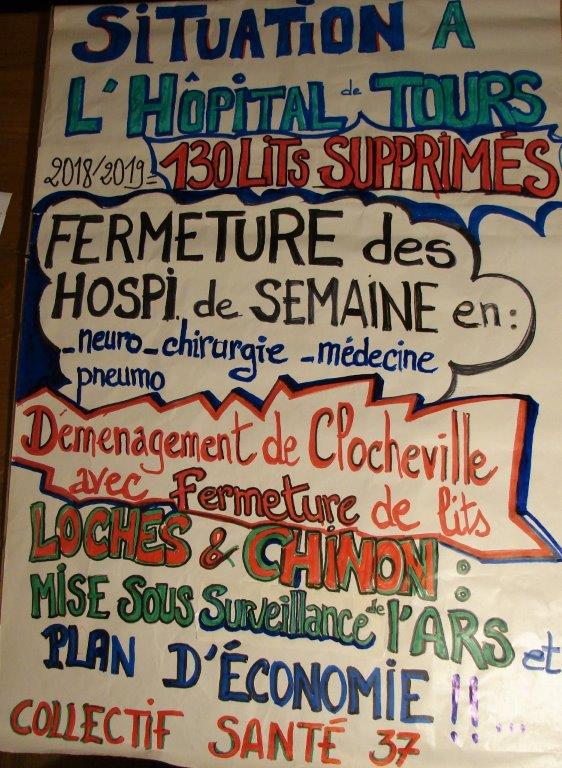 SITUATION A
L'HÔPITAL de TOURS
2018/2019= 130 LITS SUPPRIMÉS
FERMETURE des
HOSPI. de SEMAINE en :
-neuro-chirurgie -médecine
-pneumo
Déménagement de Clocheville
avec Fermeture de lits
LOCHES & CHINON :
MISE SOUS Surveillance de l'ARS et
PLAN D'ÉCONOMIE !!...
COLLECTIF SANTÉ 37